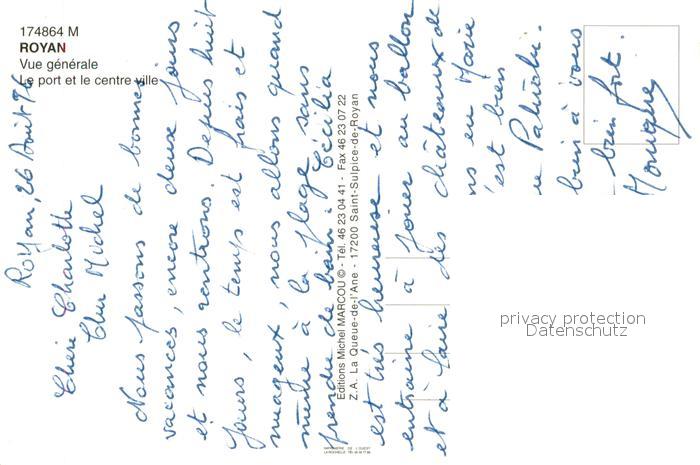 174864 M
ROYAN
Vue générale
Le port et le centre ville
Royan, 26 Août 96
Chère Charlotte
Cher Michel
Nous passons de bonnes
vacances, encore deux jours
et nous rentrons. Depuis huit
jours, le temps est frais et
nuageux, nous allons quand
même à la plage sans
prendre de bain. Cécilia
est très heureuse et nous
entraine à jouer au ballon
et à faire des châteaux de
ns en Marie
'est bien
bien à vous
bien fort.
Monique
Editions Michel MARCOU © - Tél. 46 23 04 41 - Fax 46 23 07 22
Z.A. La Queue-de-l'Ane - 17200 Saint-Sulpice-de-Royan
privacy protection
Datenschutz